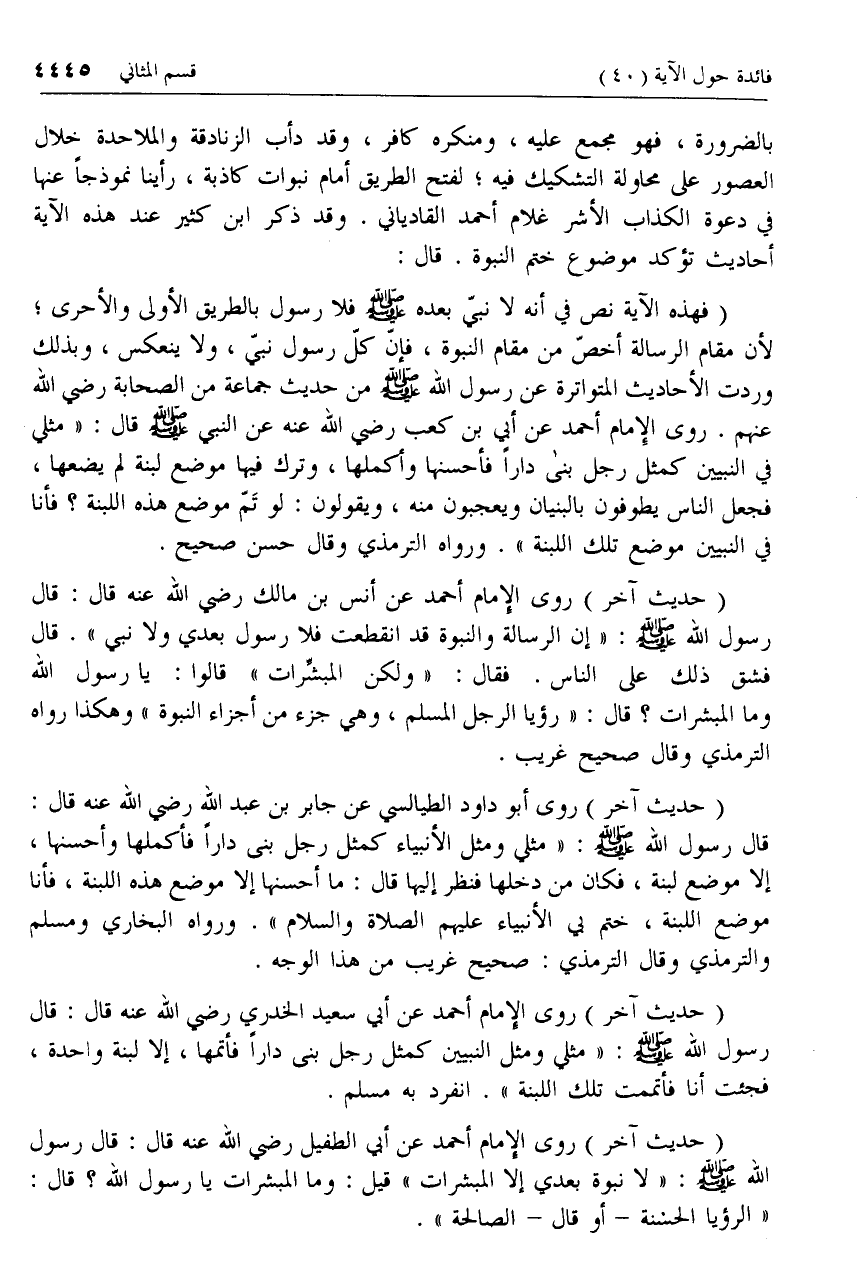 فائدة حول الآية ( ٤٠ ) قسم المثاني ٤٤٤٥
بالضرورة ، فهو مجمع عليه ، ومنكره كافر ، وقد دأب الزنادقة والملاحدة خلال
العصور على محاولة التشكيك فيه ؛ لفتح الطريق أمام نبوات كاذبة ، رأينا نموذجاً عنها
في دعوة الكذاب الأشر غلام أحمد القادياني . وقد ذكر ابن كثير عند هذه الآية
أحاديث تؤكد موضوع ختم النبوة . قال :
( فهذه الآية نص في أنه لا نبيّ بعده ﷺ فلا رسول بالطريق الأولى والأحرى ؛
لأن مقام الرسالة أخصّ من مقام النبوة ، فإنّ كلّ رسول نبيّ ، ولا ينعكس ، وبذلك
وردت الأحاديث المتواترة عن رسول الله ﷺ من حديث جماعة من الصحابة رضي الله
عنهم . روى الإمام أحمد عن أبي بن كعب رضي الله عنه عن النبي ﷺ قال : « مثلي
في النبيين كمثل رجل بنىٰ داراً فأحسنها وأكملها ، وترك فيها موضع لبنة لم يضعها ،
فجعل الناس يطوفون بالبنيان ويعجبون منه ، ويقولون : لو تَمّ موضع هذه اللبنة ؟ فأنا
في النبيين موضع تلك اللبنة » . ورواه الترمذي وقال حسن صحيح .
( حديث آخر ) روى الإمام أحمد عن أنس بن مالك رضي الله عنه قال : قال
رسول الله ﷺ : « إن الرسالة والنبوة قد انقطعت فلا رسول بعدي ولا نبي » . قال
فشق ذلك على الناس . فقال : « ولكن المبشِّرات » قالوا : يا رسول الله
وما المبشرات ؟ قال : « رؤيا الرجل المسلم ، وهي جزء من أجزاء النبوة » وهكذا رواه
الترمذي وقال صحيح غريب .
( حديث آخر ) روى أبو داود الطيالسي عن جابر بن عبد الله رضي الله عنه قال :
قال رسول الله ﷺ : « مثلي ومثل الأنبياء كمثل رجل بنى داراً فأكملها وأحسنها ،
إلا موضع لبنة ، فكان من دخلها فنظر إليها قال : ما أحسنها إلا موضع هذه اللبنة ، فأنا
موضع اللبنة ، ختم بي الأنبياء عليهم الصلاة والسلام » . ورواه البخاري ومسلم
والترمذي وقال الترمذي : صحيح غريب من هذا الوجه .
( حديث آخر ) روى الإمام أحمد عن أبي سعيد الخدري رضي الله عنه قال : قال
رسول الله ﷺ : « مثلي ومثل النبيين كمثل رجل بنى داراً فأتمها ، إلا لبنة واحدة ،
فجئت أنا فأتممت تلك اللبنة » . انفرد به مسلم .
( حديث آخر ) روى الإمام أحمد عن أبي الطفيل رضي الله عنه قال : قال رسول
الله ﷺ : « لا نبوة بعدي إلا المبشرات » قيل : وما المبشرات يا رسول الله ؟ قال :
« الرؤيا الحسْنة – أو قال – الصالحة » .